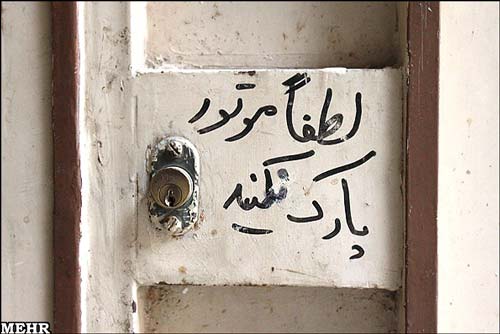 لطفاً موتور
پارک نکنید
MEHR